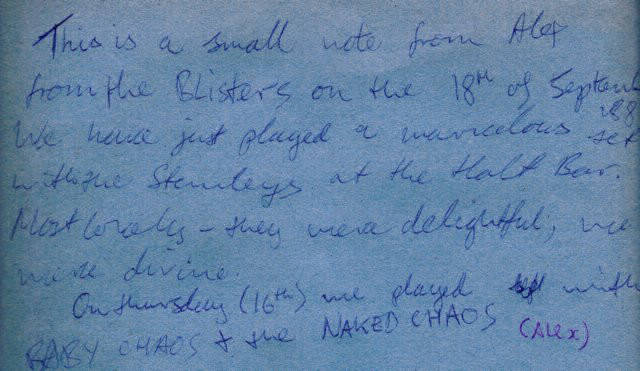 This is a small note from Alex
from the Blisters on the 18th of Septem
'88
We have just played a marvelous set
with the Stemleys at the Halt Bar.
Most lovely - they were delightful, we
were divine.
On thursday (16th) we played with
BABY CHAOS + the NAKED CHAOS (Alex)